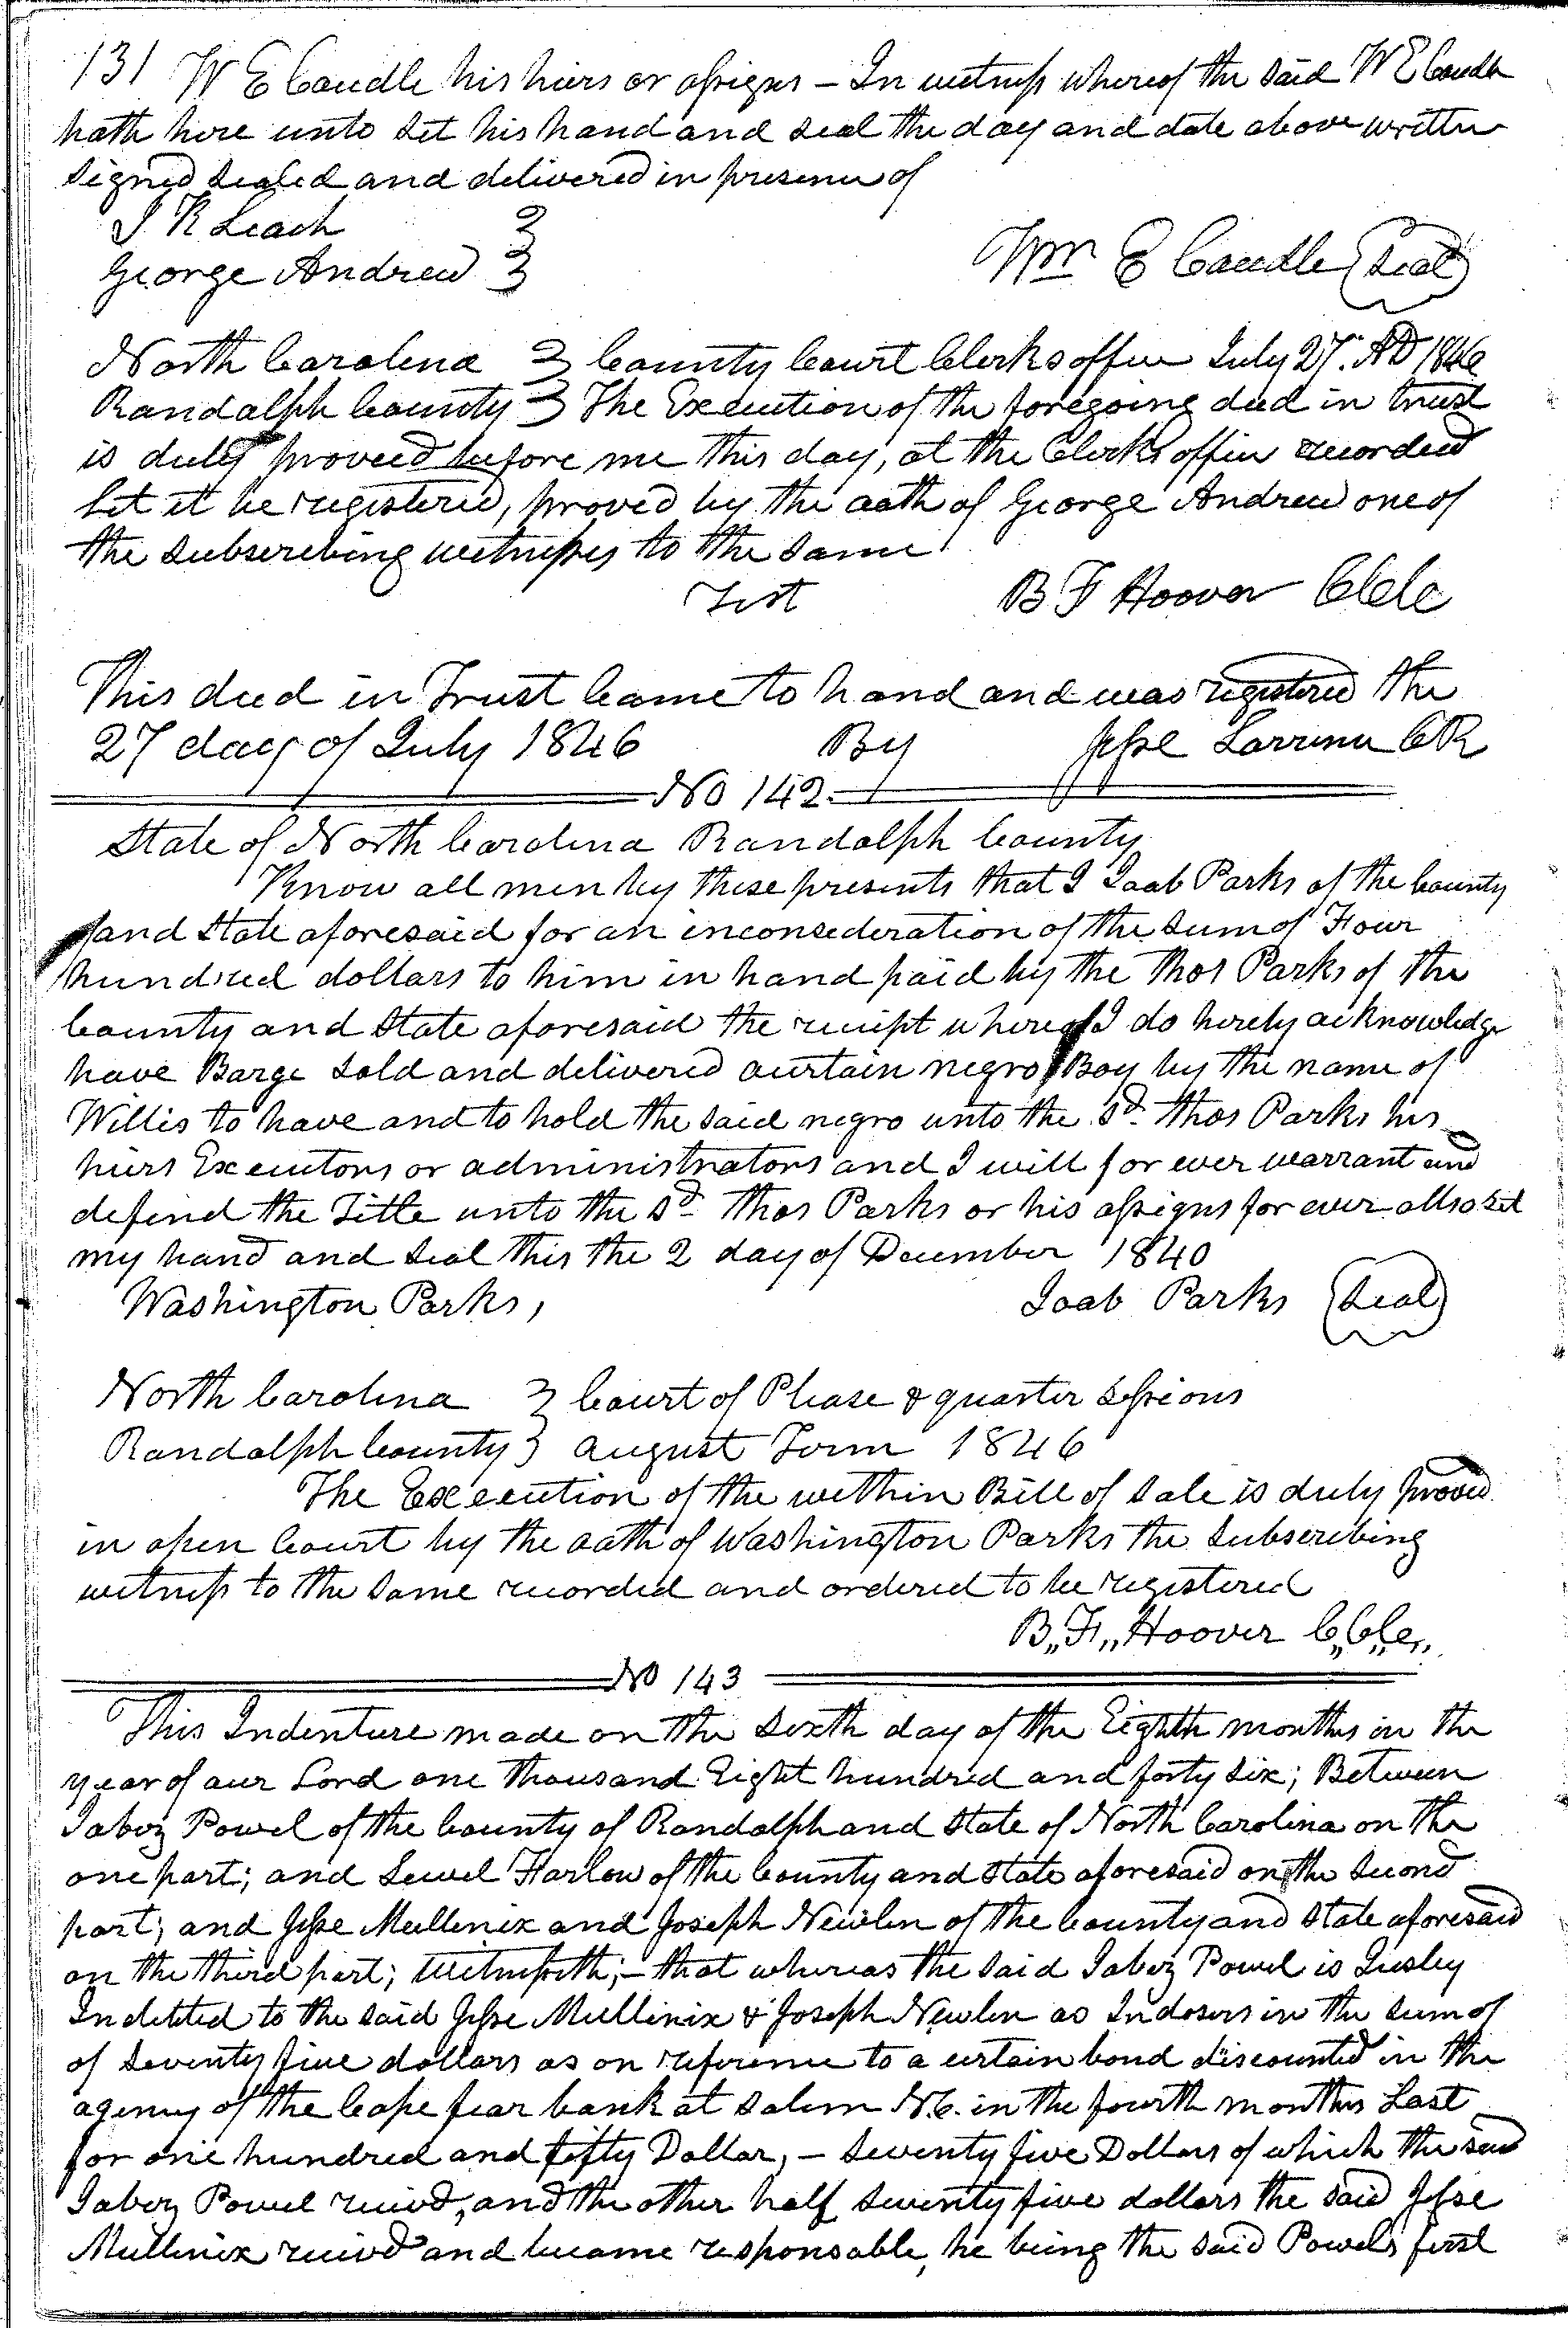 131 W E Caudle his hiers or assigns – In witness whereof the said W E Caudle
hath here unto set his hand and seal the day and date above written
signed sealed and delivered in presence of
J R Leach
George Andrew
Wm E Caudle (Seal)
North Carolina } County Court Clerks office July 27. AD 1846
Randolph County } The Execution of the foregoing deed in trust
is duly proved before me this day, at the Clerks office recorded
let it be registered, proved by the oath of George Andrew one of
the subscribing witnesses to the same
Test B F Hoover Clk
This deed in Trust Came to hand and was registered the
27 day of July 1846 By Jesse Larrence CR
No 142
State of North Carolina Randolph County
Know all men by these presents that I Joab Parks of the County
and State aforesaid for an inconsederation of the sum of Four
hundred dollars to him in hand paid by the Thos Parks of the
County and State aforesaid the receipt whereof I do herely acknowledge
have Barge sold and delivered acurtain negro Boy by the name of
Willis to have and to hold the said negro unto the sd. Thos Parks his
hiers Executors or administrators and I will for ever warrant and
defend the Title unto the sd. Thos Parks or his assigns for ever allso set
my hand and seal this the 2 day of December 1840
Washington Parks, Joab Parks (Seal)
North Carolina } Court of Please & quarter Sessions
Randolph County } august Term 1846
The Execution of the within Bill of sale is duly proved
in open Court by the oath of Washington Parks the subscribing
witness to the same recorded and ordered to be registered
B,, F,, Hoover C,,C,,C,,
No 143
This Indenture made on the sixth day of the Eighth months in the
year of our Lord one thousand Eight hundred and forty six; Between
Jabez Powel of the County of Randolph and State of North Carolina on the
one part; and Lewel Harlow of the County and State aforesaid on the second
part; and Jesse Mullenix and Joseph Newlin of the County and State aforesaid
on the third part; Witnesseth;– that whereas the said Jabez Powel is Jusley
Indetted to the said Jesse Mullinix & Joseph Newlin as Indosers in the sum of
of seventy five dollars as on reference to a certain bond discounted in the
agency of the Cape fear bank at Salem N.C. in the fourth months Last
for one hundred and fifty Dollar, – seventy five Dollars of which the said
Jabez Powel recivd, and the other half seventy five dollars the said Jesse
Mullenix recivd and became responsable, he being the said Powels first